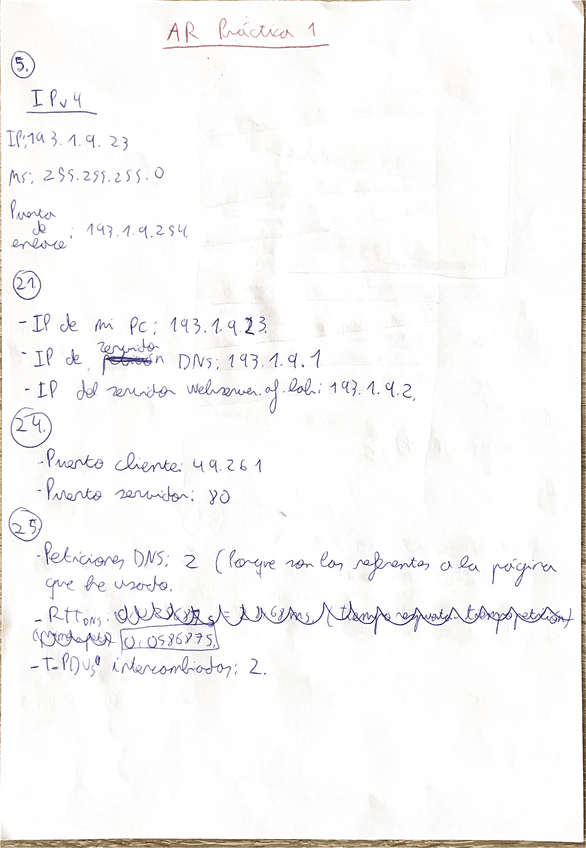 AR Práctica 1
5.
IPv4
IP: 193.1.9.23
MS: 255.255.255.0
Puerta
de
enlace : 193.1.9.254
21
- IP de mi PC: 193.1.9.23.
servidor
- IP de DNS: 193.1.9.1
- IP del servidor webserver.af.lab: 193.1.9.2.
24.
- Puerto cliente: 49.261
- Puerto servidor: 80
25
- Peticiones DNS: 2 (Porque son las referentes a la página
que he usado.
- RTT DNS:
0.058687s
- T-PDUs intercambiados: 2.